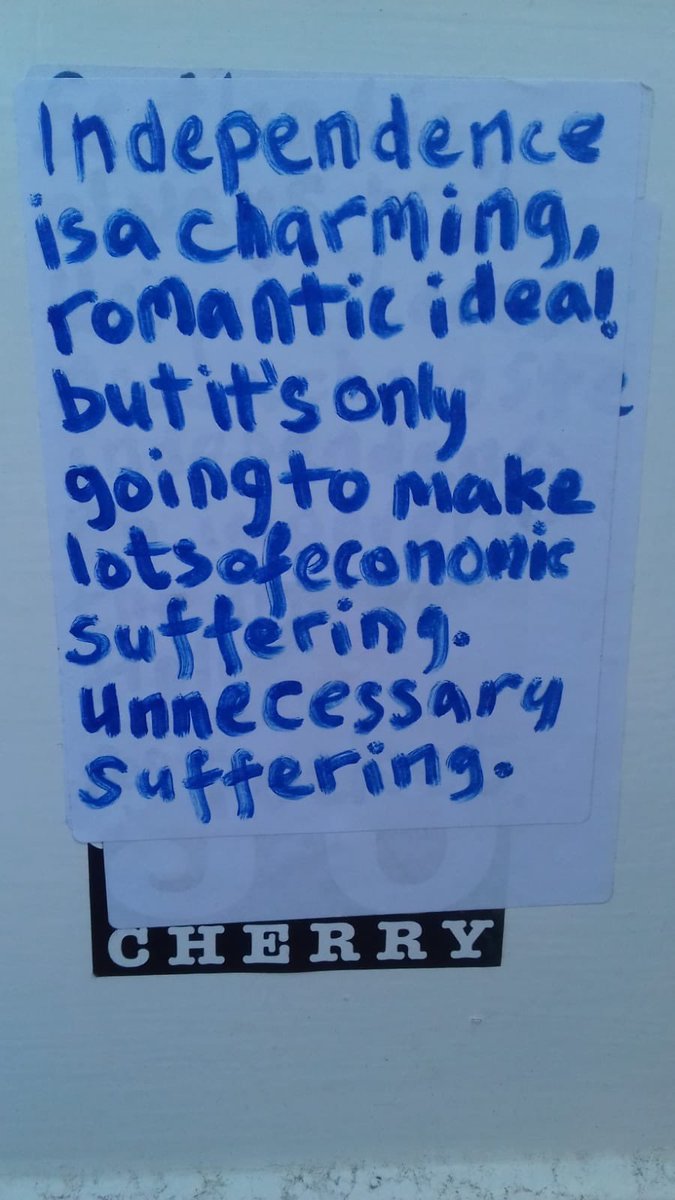 Independence
is a charming,
romantic ideal
but it's only
going to make
lots of economic
suffering.
unnecessary
suffering.
CHERRY